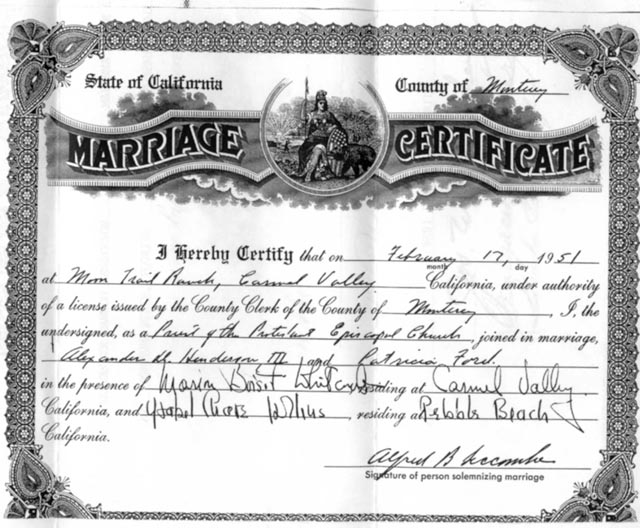 State of California County of Monterey
MARRIAGE CERTIFICATE
I Hereby Certify that on February 17, 1951
month day
at Moon Trail Ranch, Carmel Valley California, under authority
of a license issued by the County Clerk of the County of Monterey, I, the
undersigned, as a Priest of the Protestant Episcopal Church, joined in marriage,
Alexander D. Henderson III and Patricia Ford.
in the presence of residing at Carmel Valley
California, and , residing at Pebble Beach
California.
Alfred B Seccombe
Signature of person solemnizing marriage